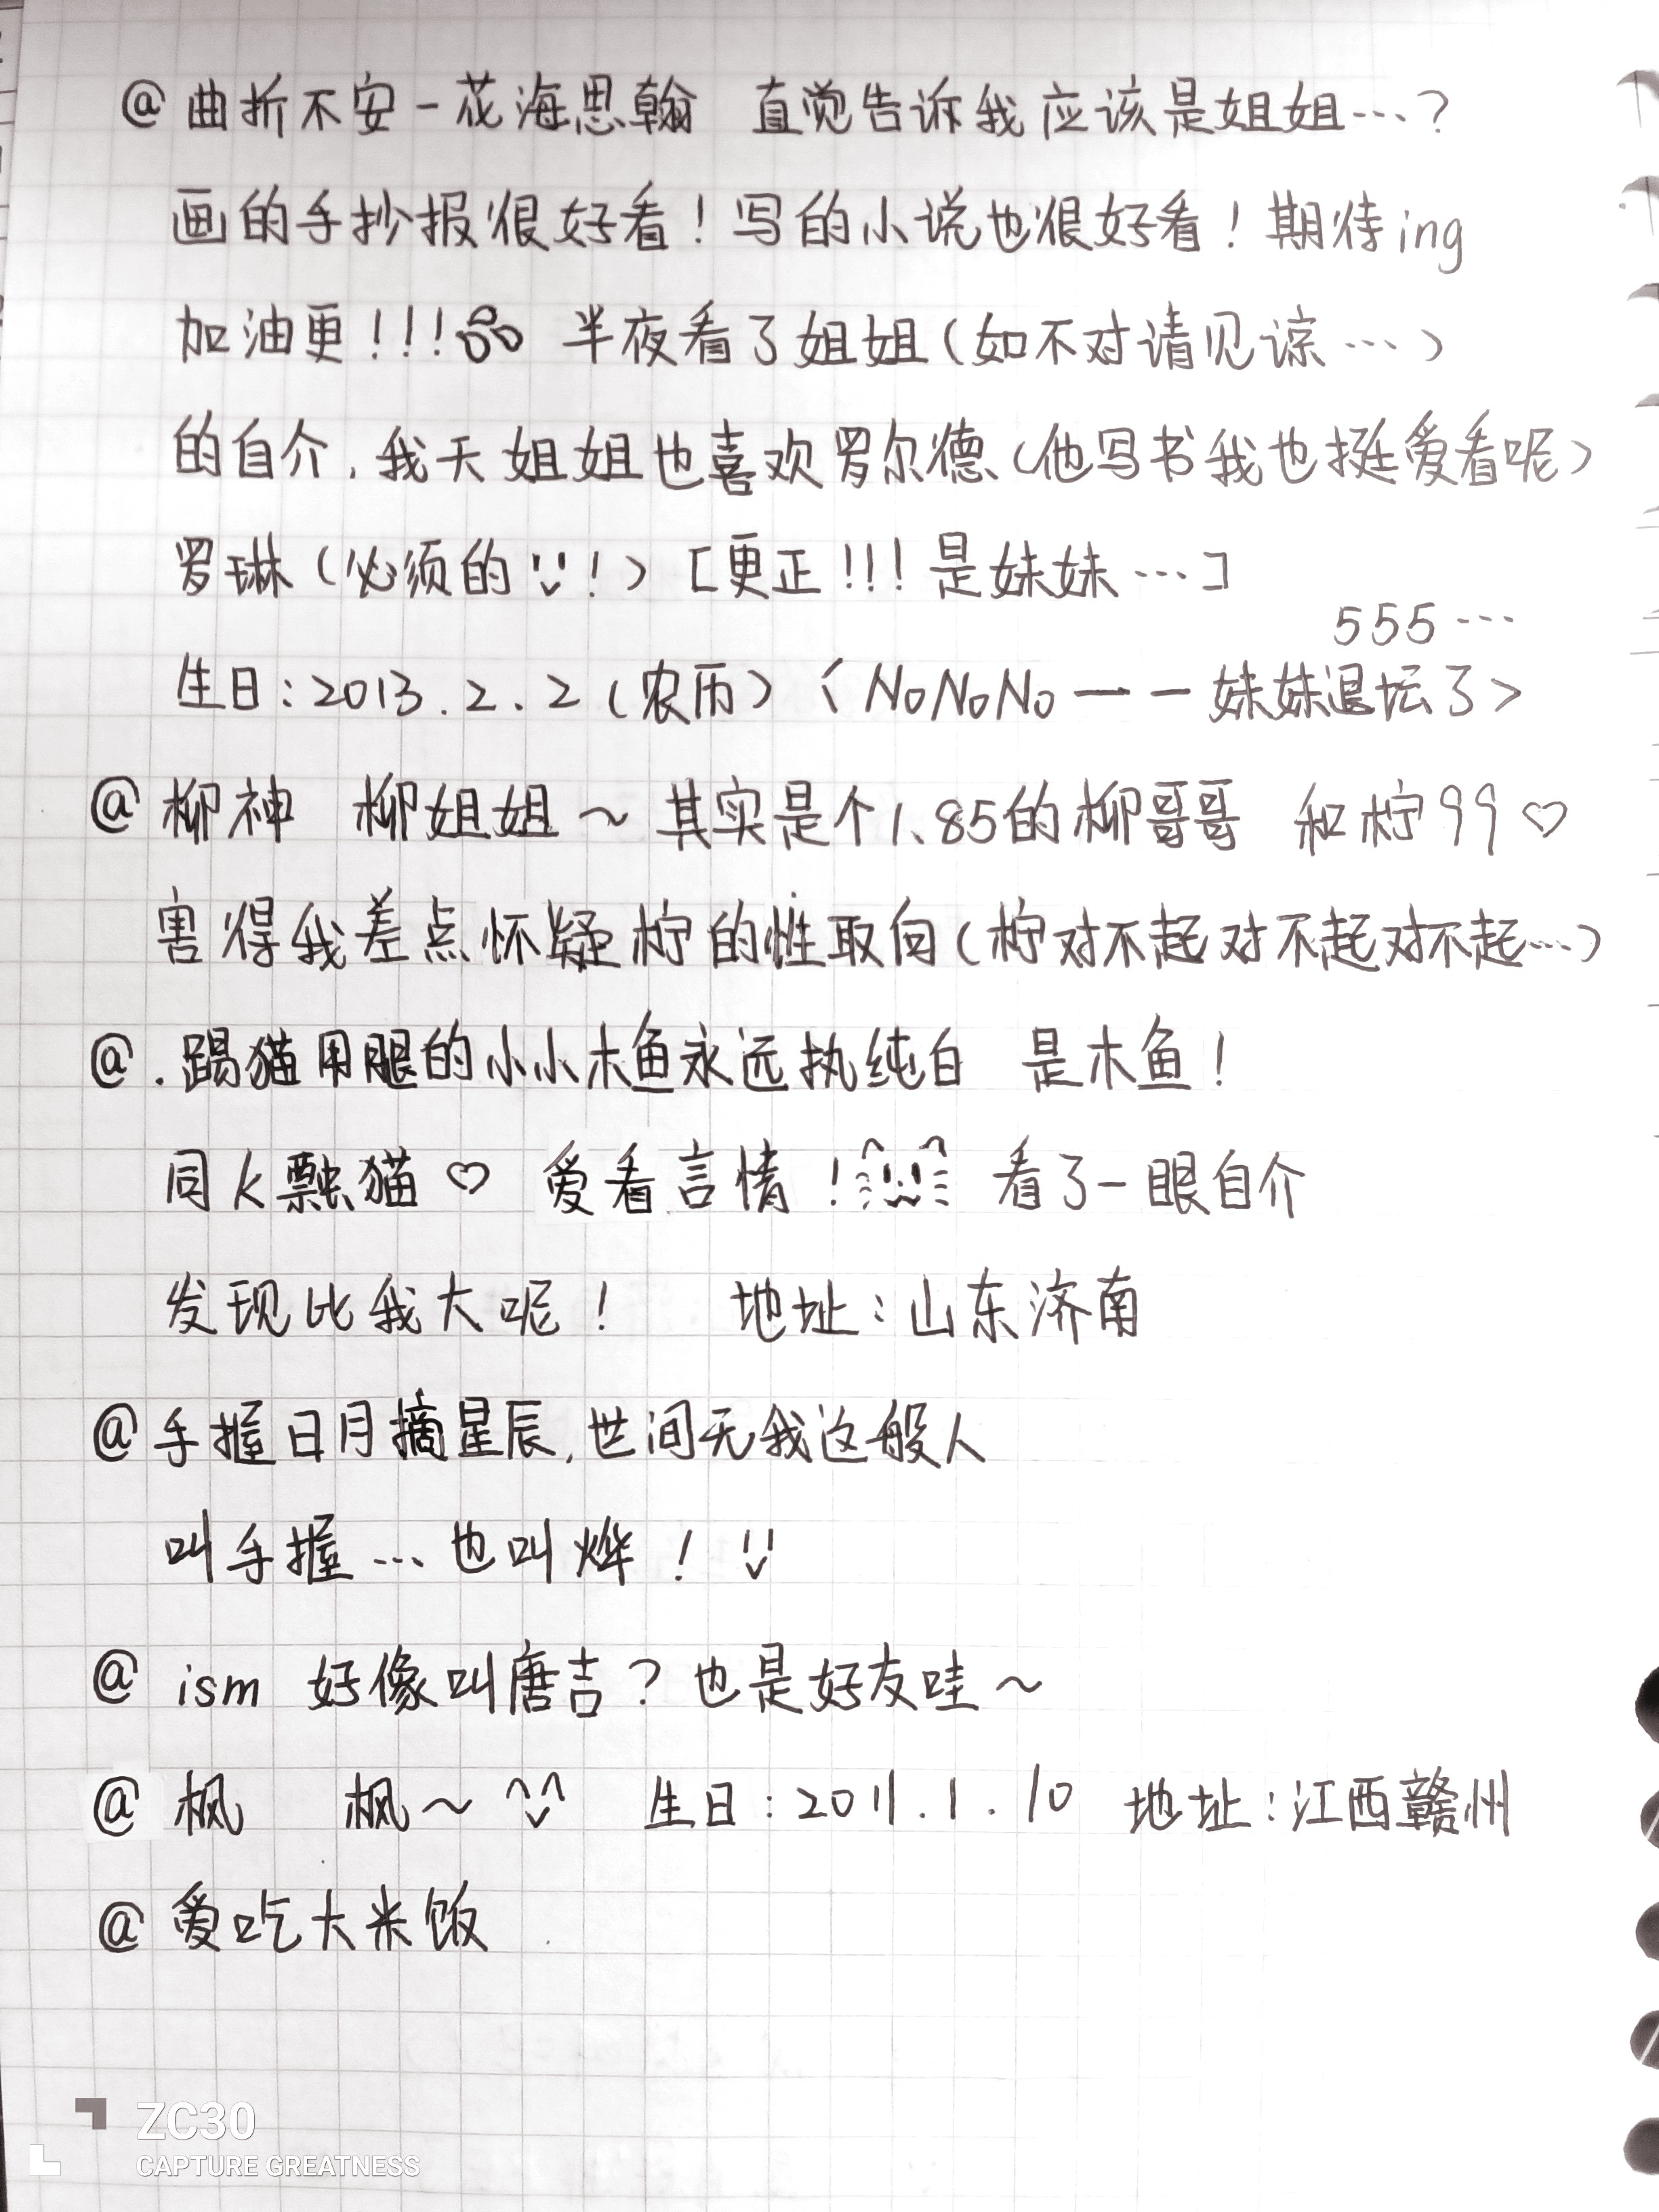 @曲折不安-花海思翰 直觉告诉我应该是姐姐…?
画的手抄报很好看!写的小说也很好看!期待ing
加油更!!! 半夜看了姐姐(如不对请见谅…)
的自介,我天姐姐也喜欢罗尔德(他写书我也挺爱看呢)
罗琳(必须的!)[更正!!!是妹妹…]
555…
生日:2013.2.2(农历)〈NoNoNo——妹妹退坛了>
@柳神 柳姐姐~其实是个1.85的柳哥哥 和柠99♡
害得我差点怀疑柠的性取向(柠对不起对不起对不起…)
@.踢猫用腿的小小木鱼永远执纯白 是木鱼!
同k瓢猫♡ 爱看言情! 看了一眼自介
发现比我大呢! 地址:山东济南
@手握日月摘星辰,世间无我这般人
叫手握…也叫烨!
@ism 好像叫唐吉?也是好友哇~
@枫 枫~ 生日:2011.1.10 地址:江西赣州
@爱吃大米饭
ZC30
CAPTURE GREATNESS